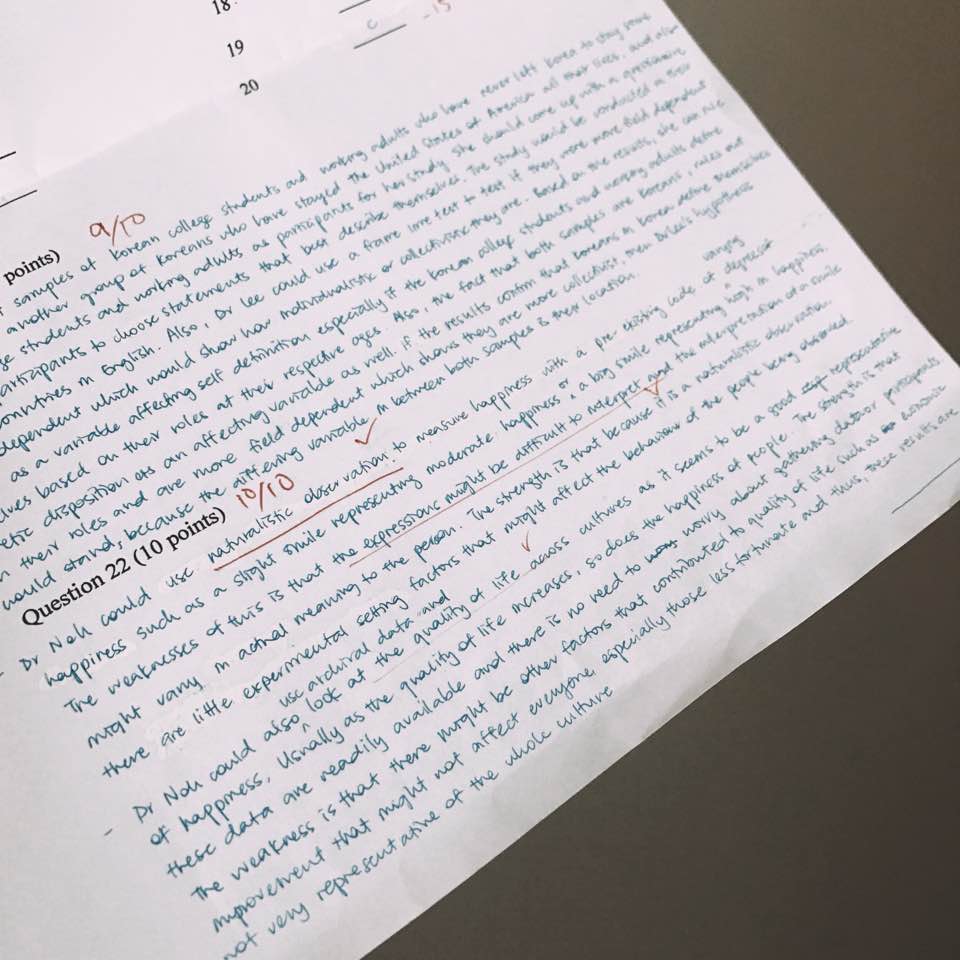 18.
19 c -15
20
points) 9/10
samples of Korean college students and working adults who have never left Korea to stay some
another group of Koreans who have stayed the United States of America all their lives, and also
ge students and working adults as participants for her study. She should come up with a questionnaire
participants to choose statements that best describe themselves. The study would be conducted in their
countries in English. Also, Dr Lee could use a frame line test to test if they were more field dependent
dependent which would show how individualistic or collectivistic they are. Based on the results, she can rule
as a variable affecting self definition especially if the Korean college students and working adults define
lves based on their roles at their respective ages. Also, the fact that both samples are Koreans, rules out
etic disposition as an affecting variable as well. If the results confirm that Koreans in Korea define themselves
n their roles and are more field dependent which shows they are more collectivist, then Dr Lee's hypothesis
would stand, because the differing variable in between both samples is their location.
Question 22 (10 points) 10/10
- Dr Noh could use naturalistic observation to measure happiness with a pre-existing code of varying degrees of
happiness such as a slight smile representing moderate happiness, or a big smile representing high in happiness.
The weaknesses of this is that the expressions might be difficult to interpret and the interpretation of a smile
might vary in actual meaning to the person. The strength is that because it is a naturalistic observation,
there are little experimental setting factors that might affect the behaviour of the people being observed.
- Dr Noh could also use archival data and look at the quality of life across cultures as it seems to be a good representative
of happiness. Usually as the quality of life increases, so does the happiness of people. The strength is that
these data are readily available and there is no need to worry about gathering data or participants
The weakness is that there might be other factors that contributed to quality of life such as economic
improvement that might not affect everyone, especially those less fortunate and thus, these results are
not very representative of the whole culture